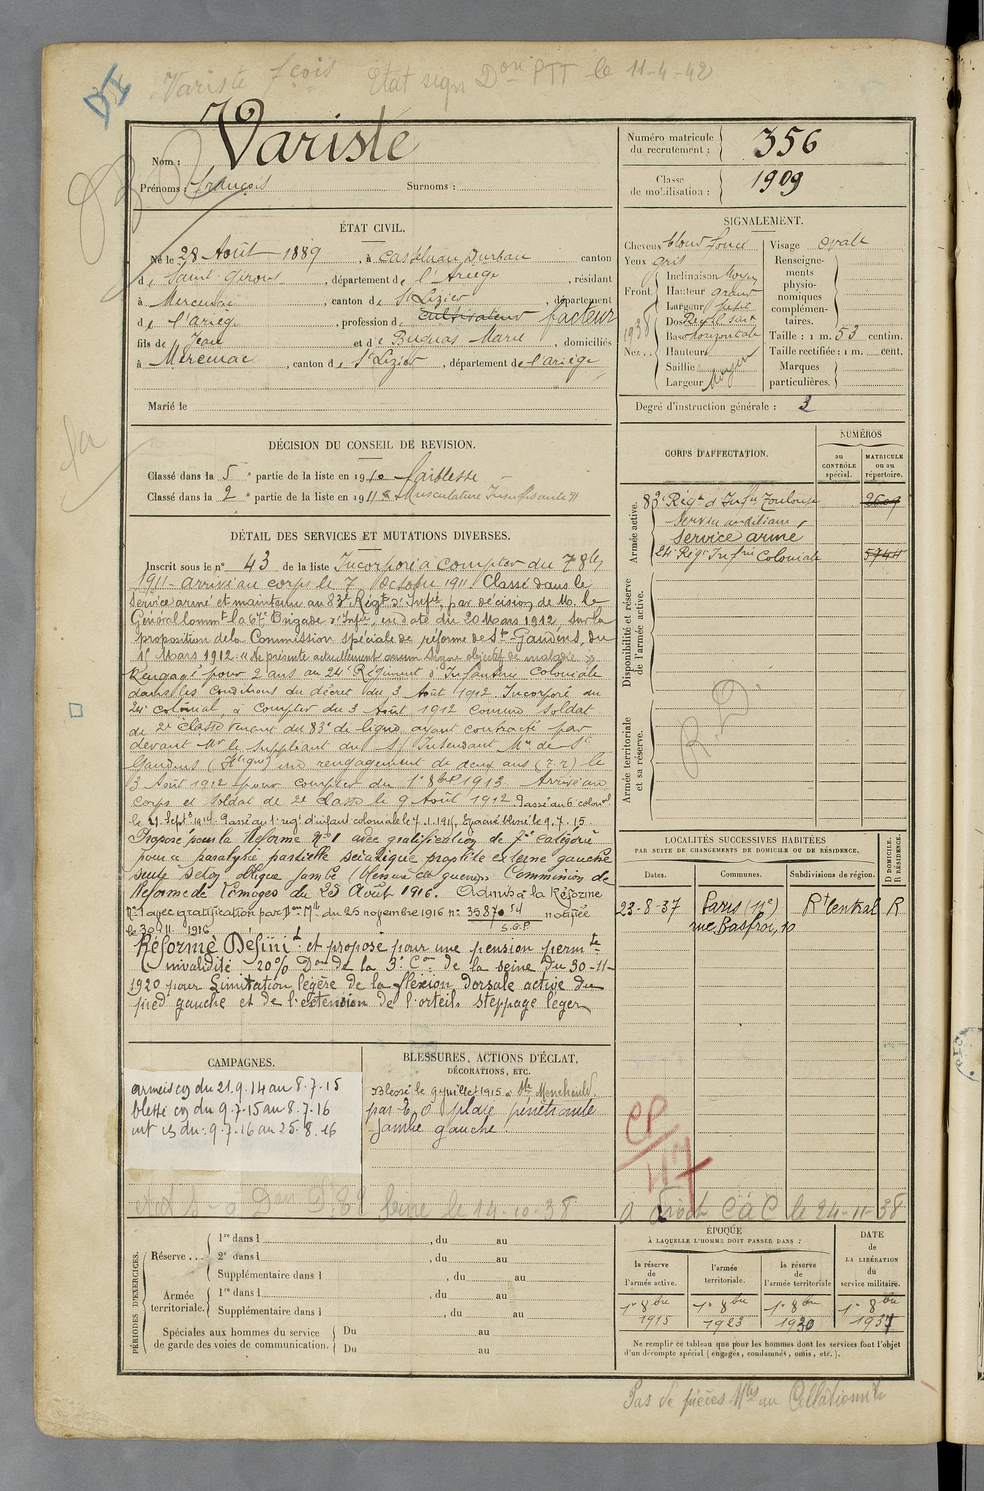 Variste fçois Etat sign Don PTT le 11-4-42
Nom : Variste
Prénoms : François Surnoms :
Numéro matricule du recrutement : 356
Classe de mobilisation : 1909
ÉTAT CIVIL.
Né le 28 Août 1889, à Castelnau Durban canton
de Saint-Girons, département de l'Ariège, résidant
à Mercenac, canton de St Lizier, département
de l'ariège, profession de cultivateur facteur
fils de Jean et de Buguas Marie, domiciliés
à Mercenac, canton de St Lizier, département de l'ariège
Marié le
SIGNALEMENT.
Cheveux blond foncé
Yeux gris
Front. Inclinaison Moyen
Hauteur grand
Largeur petit
1938
Nez. Dos Rectil sin
Base horizontale
Hauteur
Saillie
Largeur Moyen
Visage ovale
Renseignements physionomiques complémentaires.
Taille : 1 m. 53 centim.
Taille rectifiée : 1 m. cent.
Marques particulières.
Degré d'instruction générale : 3
DÉCISION DU CONSEIL DE REVISION.
Classé dans la 5e partie de la liste en 1910 faiblesse
Classé dans la 2e partie de la liste en 1911 "Musculature Insuffisante"
DÉTAIL DES SERVICES ET MUTATIONS DIVERSES.
Inscrit sous le no 43 de la liste Incorporé à compter du 7 8bre
1911 - arrivé au corps le 7 Octobre 1911 Classé dans le
service armé et maintenu au 83e Régt d'Infie, par décision de M. le
Général Commt la 67e Brigade d'Infie, en date du 20 Mars 1912, sur la
proposition de la Commission spéciale de réforme de St-Gaudens, du
15 Mars 1912. "Ne présente actuellement aucun signe objectif de maladie"
Rengagé pour 2 ans au 24e Régiment d'Infanterie Coloniale
dans les conditions du décret du 3 Août 1912. Incorporé au
24e colonial, à compter du 3 Août 1912 comme soldat
de 2e classe venant du 83e de ligne ayant contracté par
devant Mr le suppléant du S/ Intendant Mre de St
Gaudens (Hte Gne) un rengagement de deux ans le
3 Août 1912 pour compter du 1er 8bre 1913. Arrivé au
corps et soldat de 2e classe le 9 Août 1912 Passé au 6e colonial
le 21 Septe 1914 Passé au 1er rég d'infant coloniale le 7.1.1915, Evacué blessé le 9.7.15.
Proposé pour la Réforme No 1 avec gratification de 7e catégorie
pour « paralysie partielle sciatique poplité externe gauche
seule selon oblique jambe Blessure de guerre» Commission de
Réforme de Limoges du 25 Août 1916. Admis à la Réforme
No 1 avec gratification par Don Mlle du 25 novembre 1916 no 35870 54/S.G.P notifiée
le 30.11.1916
Réformé Définit et proposé pour une pension permte
invalidité 20% Don de la 3e Con de la seine du 30-11-
1920 pour Limitation légère de la flexion dorsale active du
pied gauche et de l'extension de l'orteil, steppage léger
CORPS D'AFFECTATION.
NUMÉROS
au CONTRÔLE spécial.
MATRICULE ou au répertoire.
Armée active.
83e Régt d'Infie Toulouse 2609
Service auxiliaire
service armé
24e Régt Infrie Coloniale 5744
Disponibilité et réserve de l'armée active.
Armée territoriale et sa réserve.
R.D.
LOCALITÉS SUCCESSIVES HABITÉES
PAR SUITE DE CHANGEMENTS DE DOMICILE OU DE RÉSIDENCE.
Dates. Communes. Subdivisions de région. D DOMICILE. R RÉSIDENCE.
23-8-37 Paris (11e) Rt Central R
rue Basfroi, 10
CP
117
CAMPAGNES.
armeis cg du 21.9.14 au 8.7.15
blessé cg du 9.7.15 au 8.7.16
int cg du : 9.7.16 au 25.8.16
BLESSURES, ACTIONS D'ÉCLAT, DÉCORATIONS, ETC.
Blessé le 9 juillet 1915 à Ste Menehould
par E. O plaie pénétrante
jambe gauche.
Seine le 14-10-38
a droit C à C le 24-11-38
PÉRIODES D'EXERCICES.
Réserve 1re dans l , du au
2e dans l , du au
Supplémentaire dans l , du au
Armée territoriale. 1re dans l , du au
Supplémentaire dans l , du au
Spéciales aux hommes du service de garde des voies de communication. Du au
Du au
ÉPOQUE
À LAQUELLE L'HOMME DOIT PASSER DANS :
la réserve de l'armée active. l'armée territoriale. la réserve de l'armée territoriale
DATE de LA LIBÉRATION du service militaire.
1er 8bre 1915 1er 8bre 1923 1er 8bre 1930 1er 8bre 1937
Ne remplir ce tableau que pour les hommes dont les services font l'objet
d'un décompte spécial (engagés, condamnés, omis, etc.).
Pas de pièces Mles au Collationnt